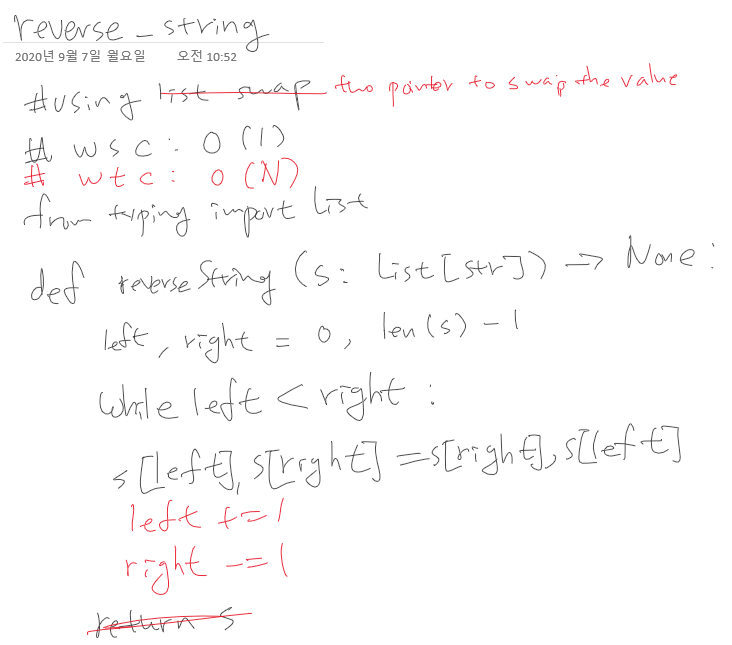 reverse_string
2020년 9월 7일 월요일 오전 10:52
#using list swap two pointer to swap the value
# wsc: O(1)
# wtc: O(N)
from typing import List
def reverseString(s: List[str]) -> None:
left, right = 0, len(s) - 1
while left < right:
s[left], s[right] = s[right], s[left]
left += 1
right -= 1
return s